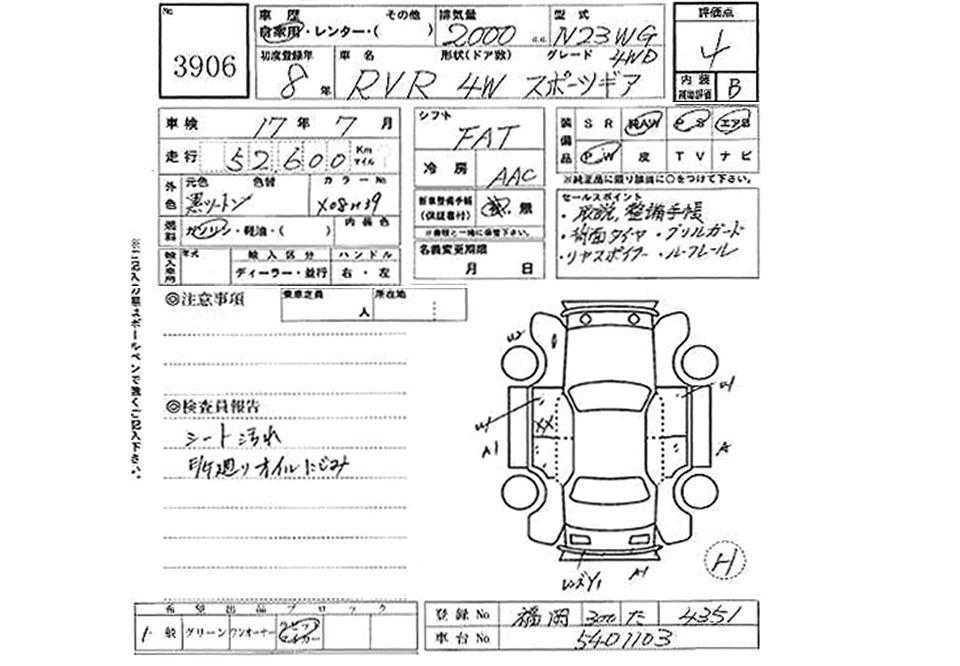 No 3906
車歴 自家用・レンター・( ) その他
排気量 2000 c.c.
型式 N23WG
初度登録年 8年
車名 RVR
形状(ドア数) 4W
グレード 4WD スポーツギア
評価点 4
内装 補助評価 B
車検 17年 7月
走行 52,600 Km マイル
外色 元色 黒ツートン 色替
カラーNo X08H39
内装色
燃料 ガソリン・軽油・( )
輸入車用 年式
輸入区分 ディーラー・並行
ハンドル 右・左
シフト FAT
冷房 AAC
新車整備手帳(保証書付) 有・無
※書類と一緒に保管下さい。
名義変更期限 月 日
装備品 SR 純AW PS エアB
PW 皮 TV ナビ
※純正品に限り該当に○をつけて下さい。
セールスポイント
・取説、整備手帳
・背面タイヤ・グリルガード
・リヤスポイラー・ルーフレール
※に記入の際はボールペンで強くご記入下さい。
◎注意事項
乗車定員 人
所在地
◎検査員報告
シート汚れ
E/G廻りオイルにじみ
A1
A
A1
H
希望出品ブロック
一般 グリーン ワンオーナー
登録No 福岡 300 た 4351
車台No 5401103